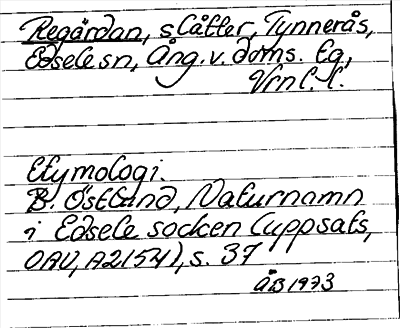 Regärdan, slåtter, Tynnerås,
Edsele sn, Ång. v. doms. Eg,
Vrnl. l.
Etymologi.
B. Östlund, Naturnamn
i Edsele socken (uppsats,
OAU, A2154), s. 37
ÅB 1973